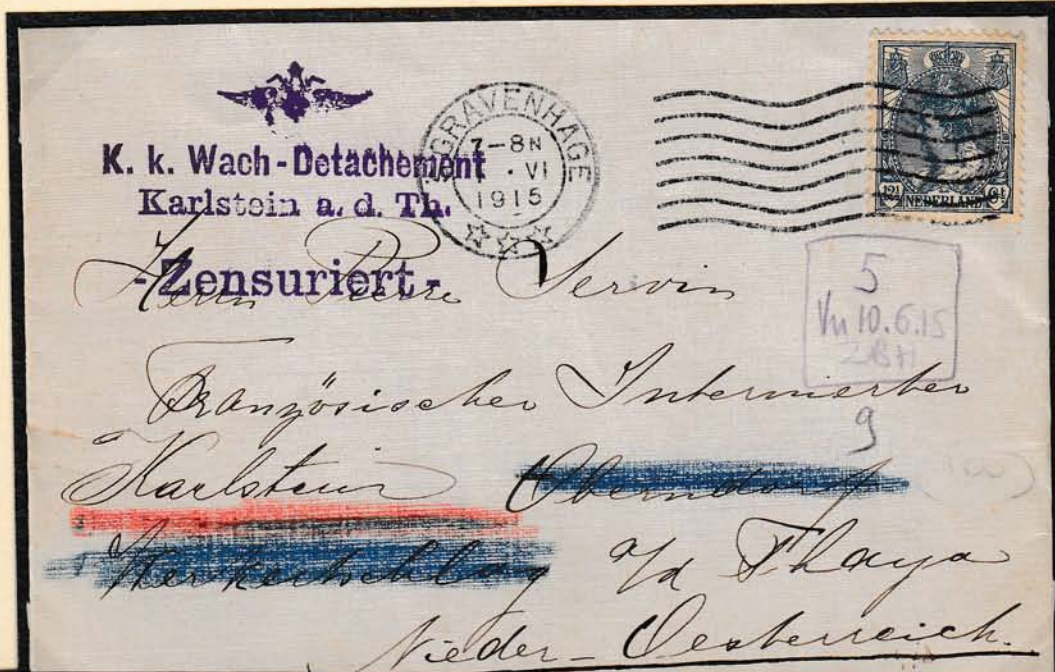 K. k. Wach-Detachement
Karlstein a. d. Th.
-Zensuriert-
'S GRAVENHAGE
7-8N
VI
1915
12½ Ct
NEDERLAND
Herrn Pierre Servin
5
10.6.15
Französischer Internierter
9
Karlstein Oberndorf
a/d Thaya
Nieder-Oesterreich.